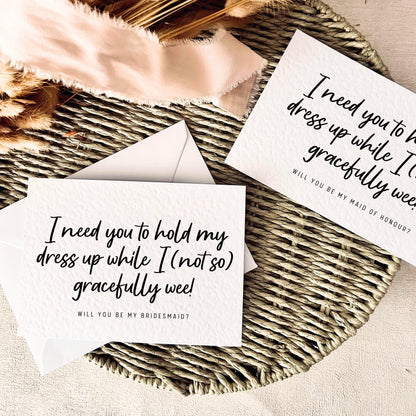 I need you to hold my
dress up while I (not so)
gracefully wee!
WILL YOU BE MY BRIDESMAID?
I need you to hol
dress up while I (
gracefully wee!
WILL YOU BE MY MAID OF HONOUR?